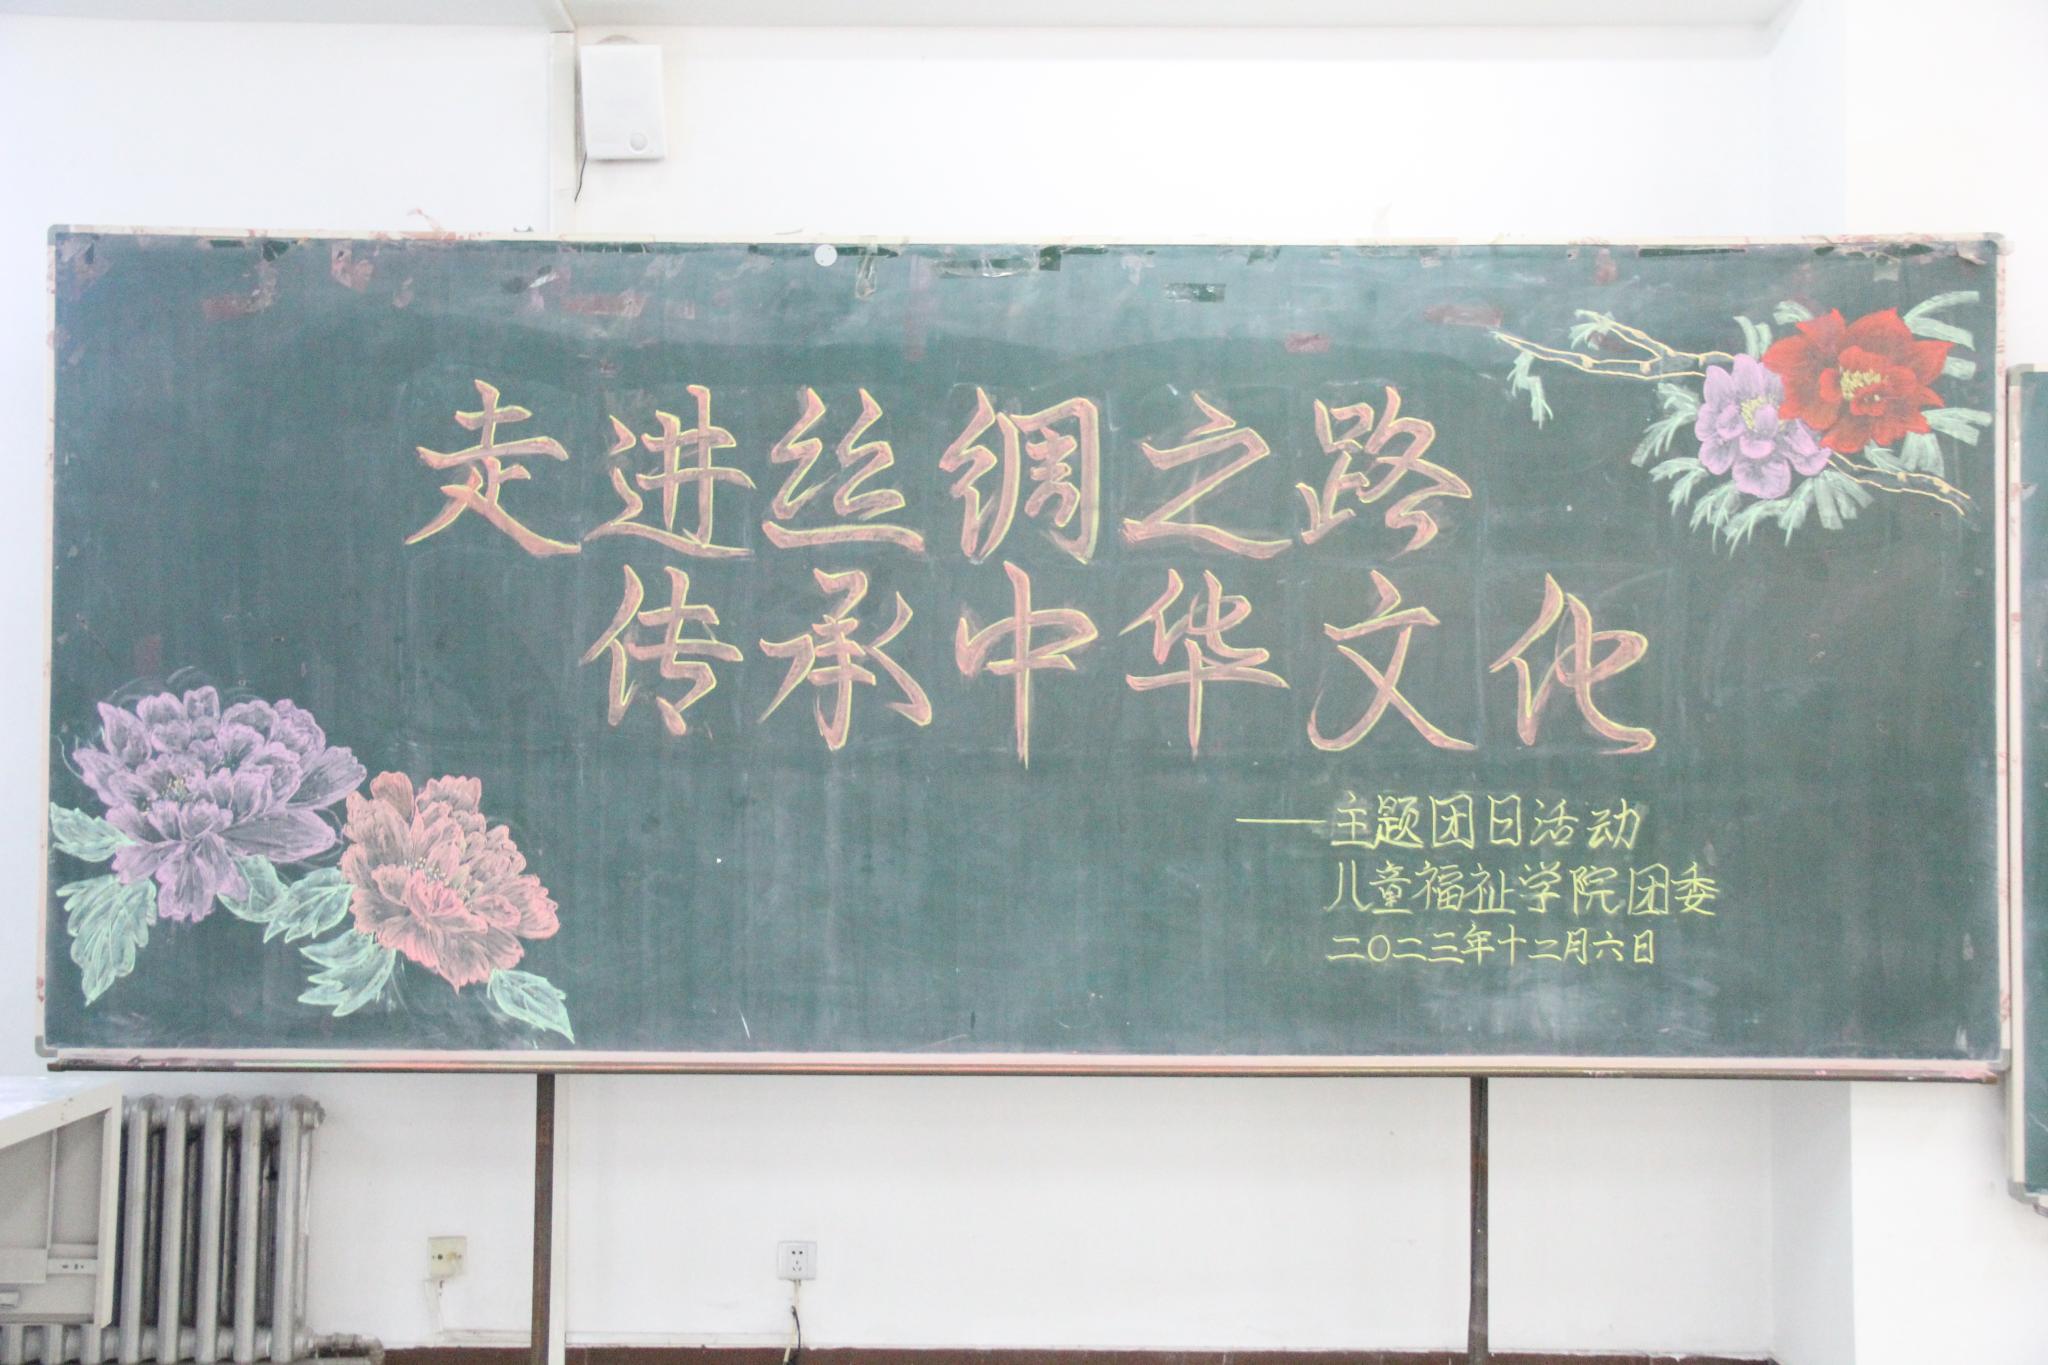 走进丝绸之路
传承中华文化
——主题团日活动
儿童福祉学院团委
二〇二三年十二月六日